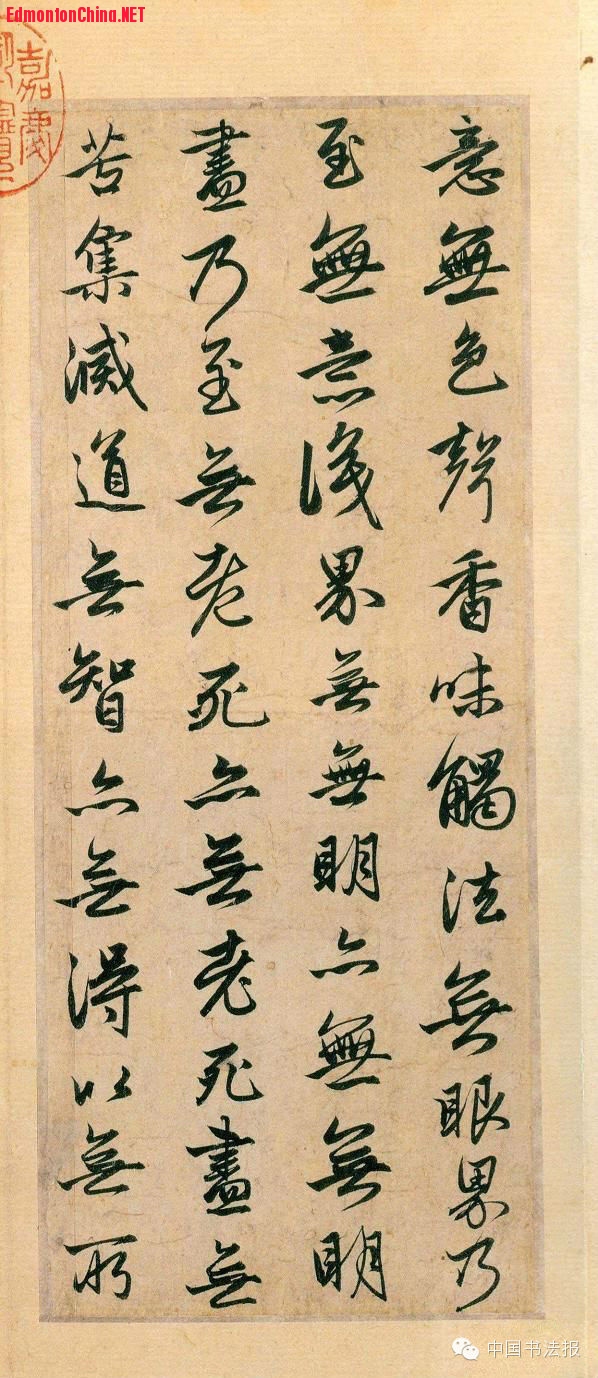 EdmontonChina.NET
嘉慶
意無色聲香味觸法無眼界乃
至無意識界無無明亦無無明
盡乃至無老死亦無老死盡無
苦集滅道無智亦無得以無所
中国书法报